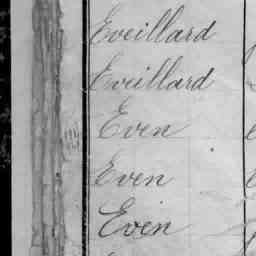 Eveillard
Eveillard
Even
Even
Even